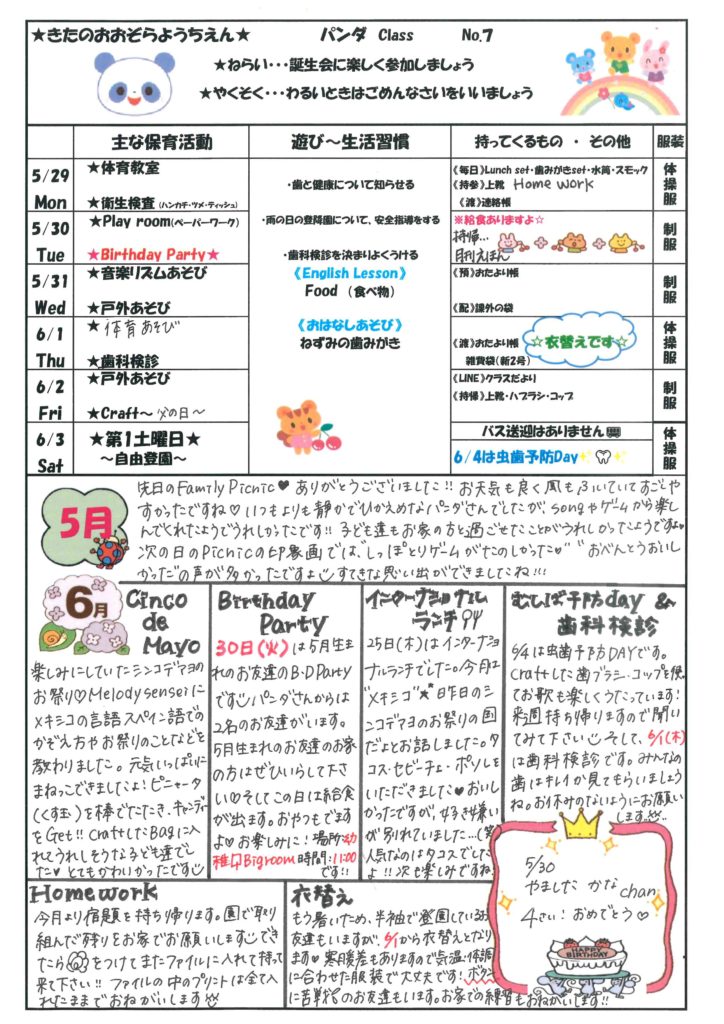 ★きたのおおぞらようちえん★ パンダ Class No.7
★ねらい・・・誕生会に楽しく参加しましょう
★やくそく・・・わるいときはごめんなさいをいいましょう
主な保育活動 遊び～生活習慣 持ってくるもの ・ その他 服装
5/29 Mon
★体育教室
★衛生検査(ハンカチ・ツメ・ティッシュ)
《毎日》Lunch set・歯みがきset・水筒・スモック
《持参》上靴 Home work
《渡》連絡帳
体操服
5/30 Tue
★Play room(ペーパーワーク)
★Birthday Party★
※給食ありますよ☆
持帰…
月刊えほん
制服
5/31 Wed
★音楽リズムあそび
★戸外あそび
《預》おたより帳
《配》課外の袋
制服
6/1 Thu
★体育あそび
★歯科検診
《渡》おたより帳
雑費袋(新2号)
☆衣替えです☆
体操服
6/2 Fri
★戸外あそび
★Craft～父の日～
《LINE》クラスだより
《持帰》上靴・ハブラシ・コップ
制服
6/3 Sat
★第1土曜日★
～自由登園～
バス送迎はありません
6/4は虫歯予防Day
体操服
・歯と健康について知らせる
・雨の日の登降園について、安全指導をする
・歯科検診を決まりよくうける
《English Lesson》
Food （食べ物）
《おはなしあそび》
ねずみの歯みがき
5月
先日のFamily Picnic♥ありがとうございました!!お天気も良く風もふいていてすごしや
すかったですね♡いつもよりも静かでひかえめなパンダさんでしたが、songやゲームから楽し
んでくれたようでうれしかったです!!子ども達もお家の方と過ごせたことがうれしかったようですよ♡
次の日のPicnicの印象画では、"しっぽとりゲームがたのしかった♡""おべんとうおいし
かった"の声が多かったですよ すてきな思い出ができましたね!!!
6月
Cinco
de
Mayo
楽しみにしていたシンコデマヨの
お祭り♡Melody senseiに
メキシコの言語スペイン語での
かぞえ方やお祭りのことなどを
教わりました。元気いっぱいに
まねっこできましたよ!ピニャータ
(くす玉)を棒でたたき、キャンディー
をGet!! CraftしたBagに入
れてうれしそうな子ども達でし
た♡とてもかわいかったです
Birthday
Party
30日(火)は5月生ま
れのお友達のB・D Party
です パンダさんからは
2名のお友達がいます。
5月生まれのお友達のお家
の方はぜひいらして下さ
い♡そしてこの日は給食
が出ます。おやつもでます
よ♡お楽しみに!場所:幼
稚Bigroom時間:11:00
です!!
インターナショナル
ランチ
25日(木)はインターナショ
ナルランチでした。今月は
"メキシコ"★昨日のシ
ンコデマヨのお祭りの国
だよとお話しました。タ
コス・セビーチェ・ポソレを
いただきました♥おいし
かったですが、好き嫌い
が別れていました…(笑)
人気なのはタコスでした
よ!!次も楽しみですね!
むしば予防day &
歯科検診
6/4は虫歯予防DAYです。
Craftした歯ブラシ・コップを使っ
てお歌も楽しくうたっています!
来週持ち帰りますので聞い
てみて下さい そして、6/1(木)
は歯科検診です。みんなの
歯はキレイか見てもらいましょう
ね。お休みのないようにお願い
します!!
5/30
やました かな chan
4さい!おめでとう♡
HAPPY
BIRTHDAY
Homework
今月より宿題を持ち帰ります。園で取り
組んだ残りをお家でお願いします できたら
をつけてまたファイルに入れて持って
来て下さい!!ファイルの中のプリントは全て入
れたままでおねがいします
衣替え
もう暑いため、半袖で登園しているお
友達もいますが、6/1から衣替えとなり
ます♥寒暖差もありますので気温・体調
に合わせた服装で大丈夫です!ボタン
に苦戦のお友達もいます。お家での練習もおねがいします!!